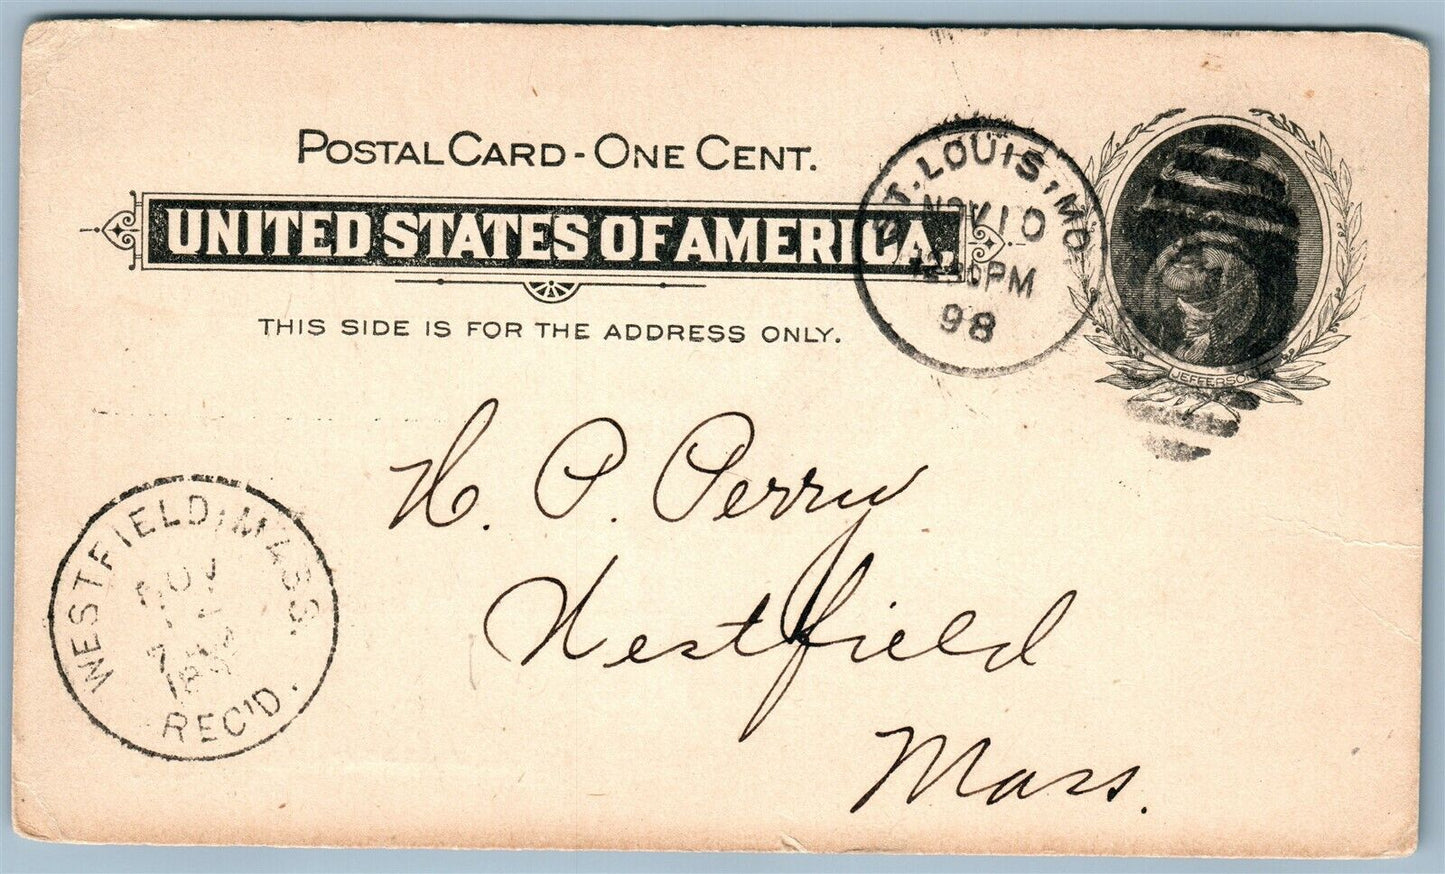 POSTAL CARD - ONE CENT.
UNITED STATES OF AMERICA.
THIS SIDE IS FOR THE ADDRESS ONLY.
ST. LOUIS, MO.
NOV 10
PM
98
JEFFERSON
H. P. Perry
Westfield
Mass.
WESTFIELD, MASS.
NOV
REC'D.